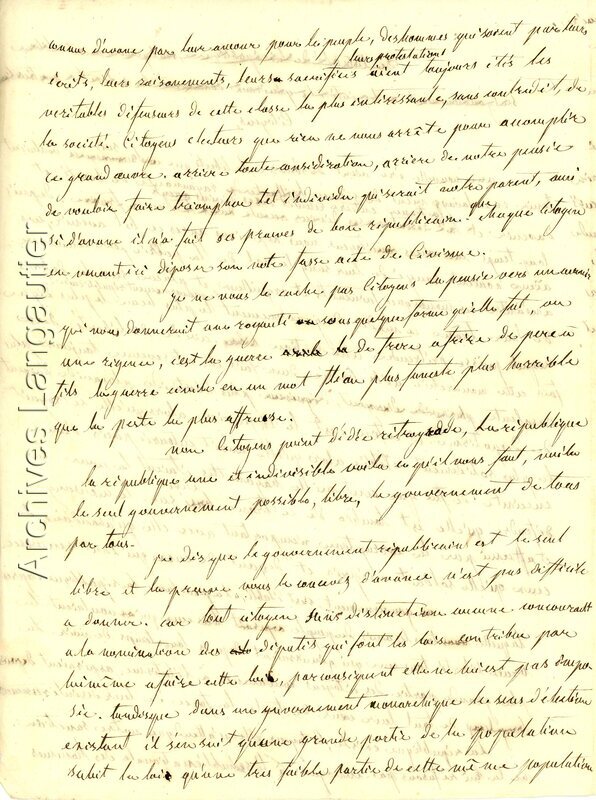 connus d'avance par leur amour pour le peuple, des hommes qui soient par leurs
leurs protestations
écrits, leurs raisonements, leurs sacrifices aient toujours étés les
veritables défenseurs de cette classe la plus intéressante, sans contredit, de
la société. Citoyens électeurs que rien ne nous arrête pour accomplir
ce grand œuvre. arriere toute considération, arriere de notre pensée
de vouloir faire triompher tel individu qui serait notre parent, ami
si d'avance il n'a fait ses preuves de bon républicain. que chaque citoyen
en venant ici déposer son vote fasse acte de Civisme.
Je ne vous le cache pas Citoyens la pensée vers un avenir
qui nous donnerait une royauté sous quelque forme qu'elle fut, ou
une régence, c'est la guerre de frere a frere de pere a
fils la guerre civile en un mot fléau plus funeste plus horrible
que la peste la plus affreuse.
non Citoyens point d'idée rétrograde, La république
la république une et indivisible voila ce qu'il nous faut, voila
le seul gouvernement possible, libre, le gouvernement de tous
par tous.
je dis que le gouvernement républicain est le seul
libre et la preuve vous le concevez d'avance n'est pas difficile
a donner. car tout citoyen sans distinction aucune concourant
a la nomination des députés qui font les lois contribue par
lui même a faire cette loi, par conséquent elle ne lui est pas impo
sée. tandis que dans un gouvernement monarchique le sens d'élection
existant il s'en suit qu'une grande partie de la population
subit la loi qu'une tres faible partie de cette même population
Archives Langautier